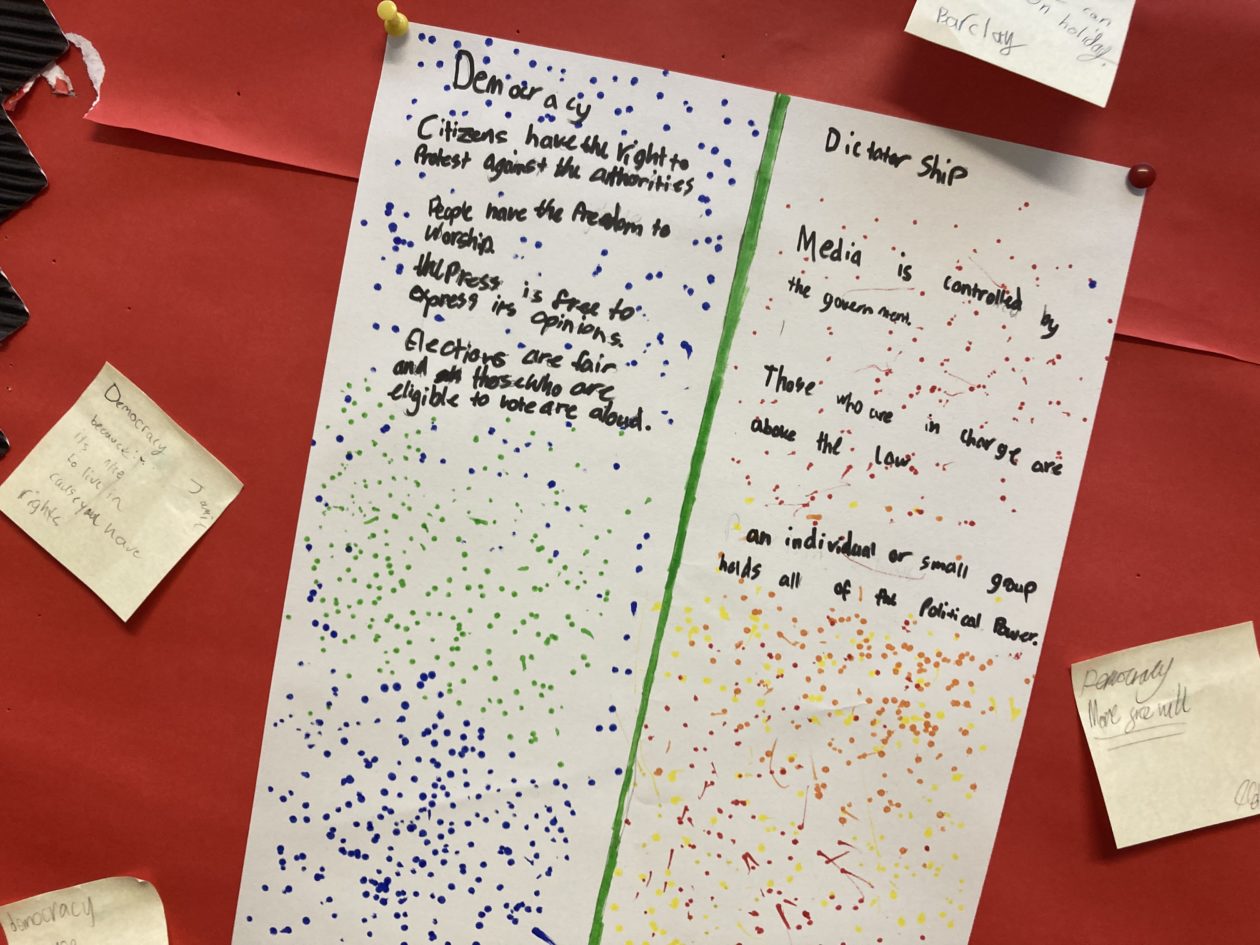 Democracy
Citizens have the right to
Protest against the authorities
People have the freedom to
Worship.
the Press is free to
express its opinions.
Elections are fair
and all those who are
eligible to vote are aloud.
Dictator Ship
Media is controlled by
the government.
Those who are in charge are
above the law
an individual or small group
holds all of the Political Power.
can
on holiday.
Barclay
Democracy
because
its nice
to live in
cause you have
rights
Democracy
More
democracy